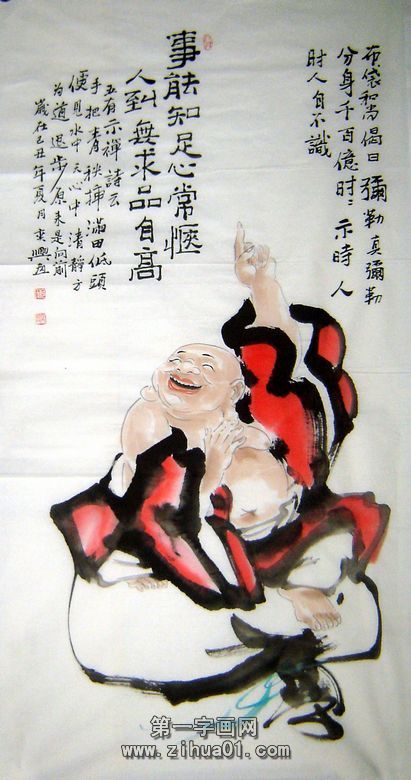 布袋和尚偈曰彌勒真彌勒
分身千百億時〻示時人
時人自不識
事能知足心常愜
人到無求品自高
又有示禪詩云
手把青秧插滿田低頭
便見水中天心中清靜方
為道退步原來是向前
歲在己丑年夏月
第一字画网
www.zihua01.com